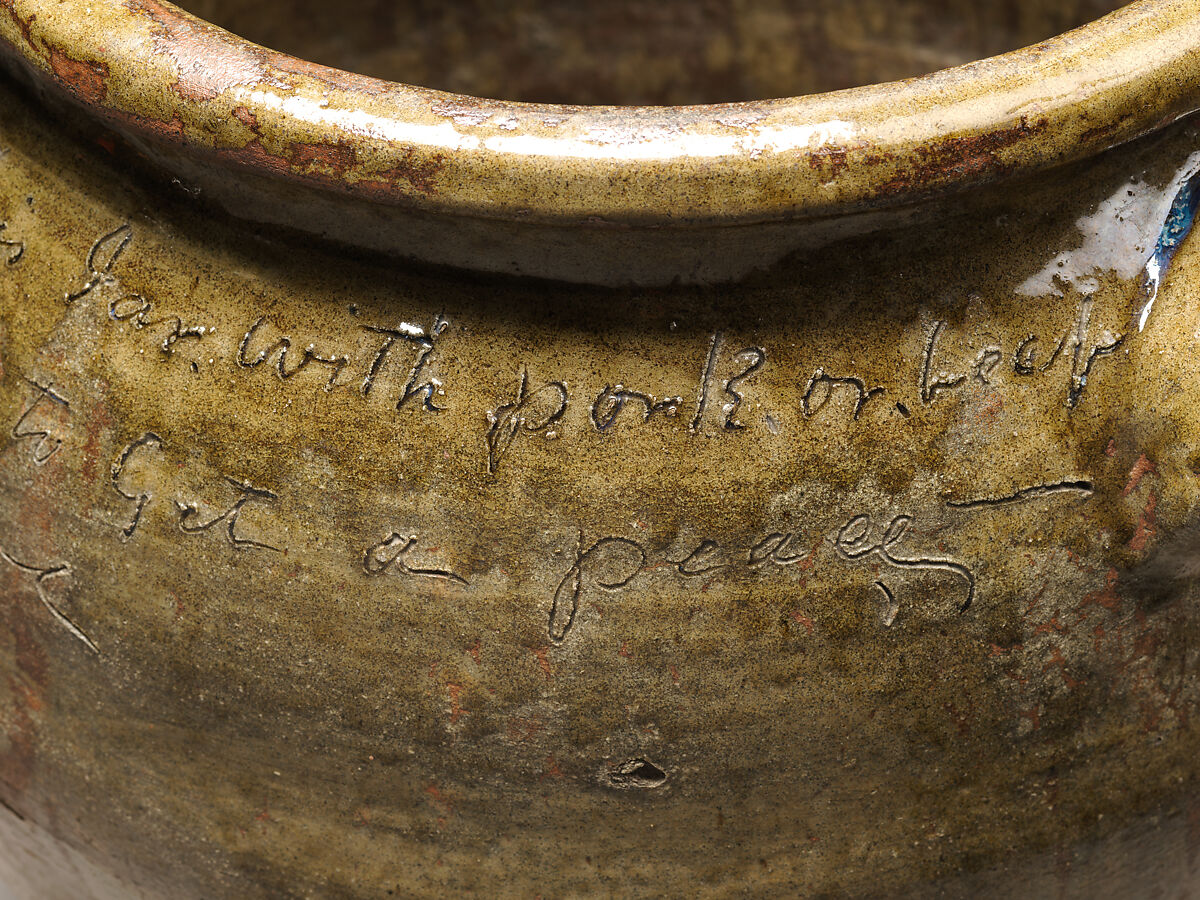 Jar. with pork. or. beef
to Get a peace, —